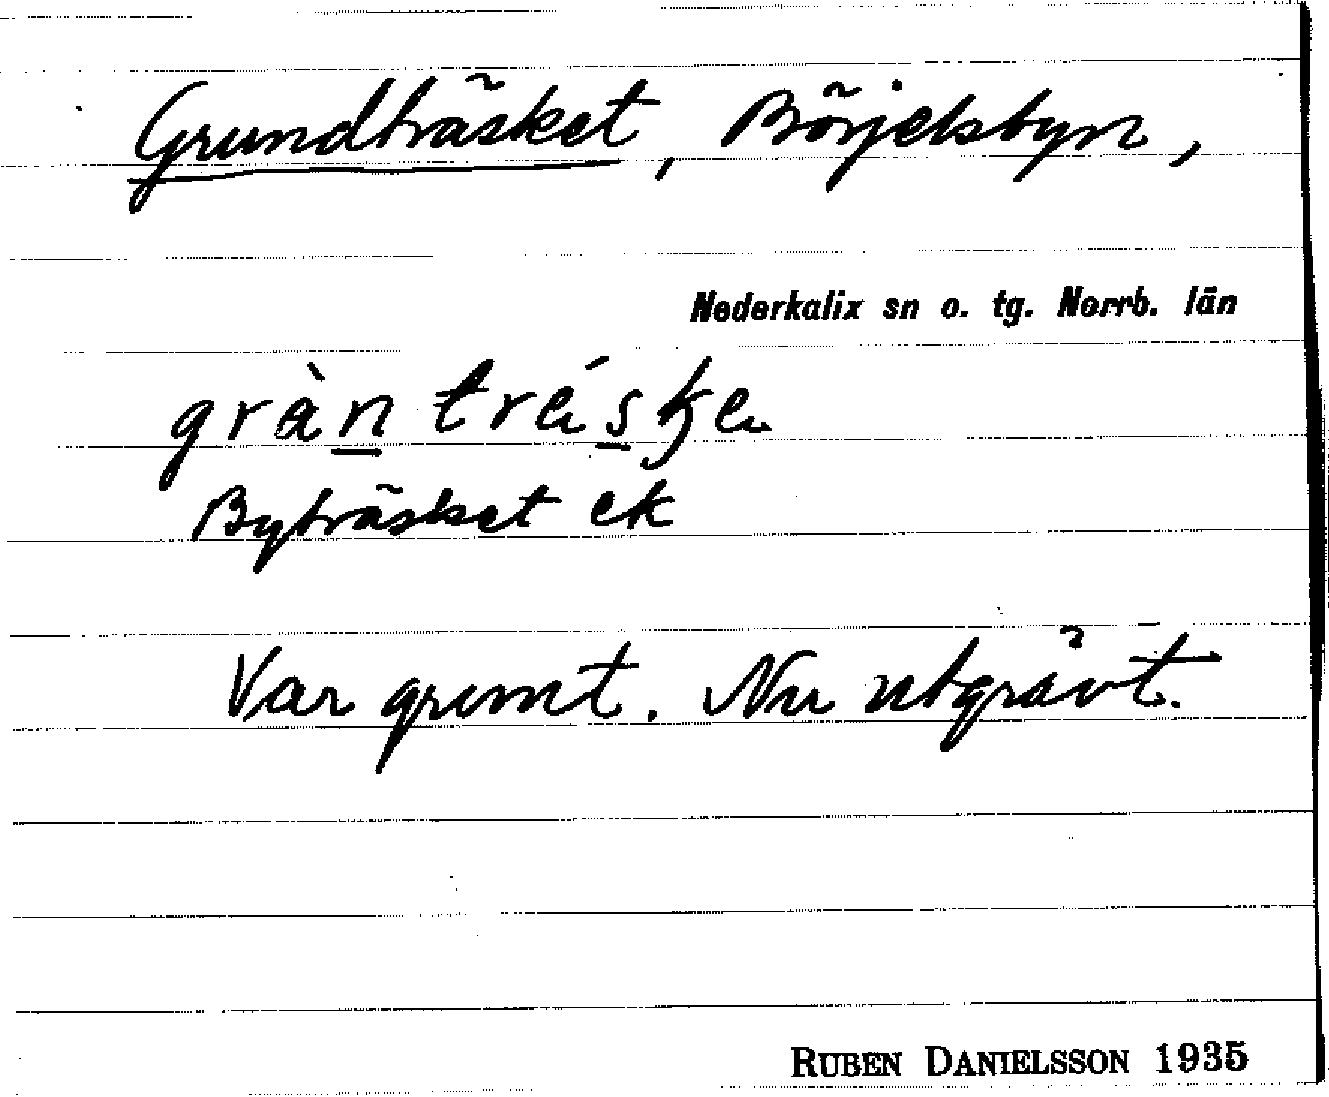 Grundträsket, Börjelsbyn,
Nederkalix sn o. tg. Norrb. län
gràn tréske
Byträsket ek
Var grunt. Nu utgrävt.
RUBEN DANIELSSON 1935